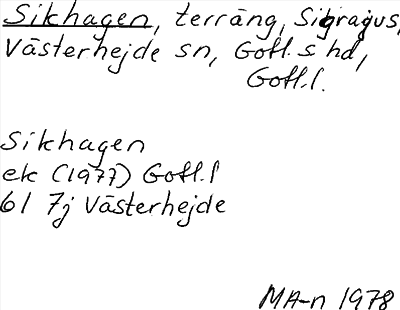 Sikhagen, terräng, Sigraivs,
Västerhejde sn, Gotl. s hd,
Gotl.l.
Sikhagen
ek (1977) Gotl.l
6I 7j Västerhejde
MA-n 1978